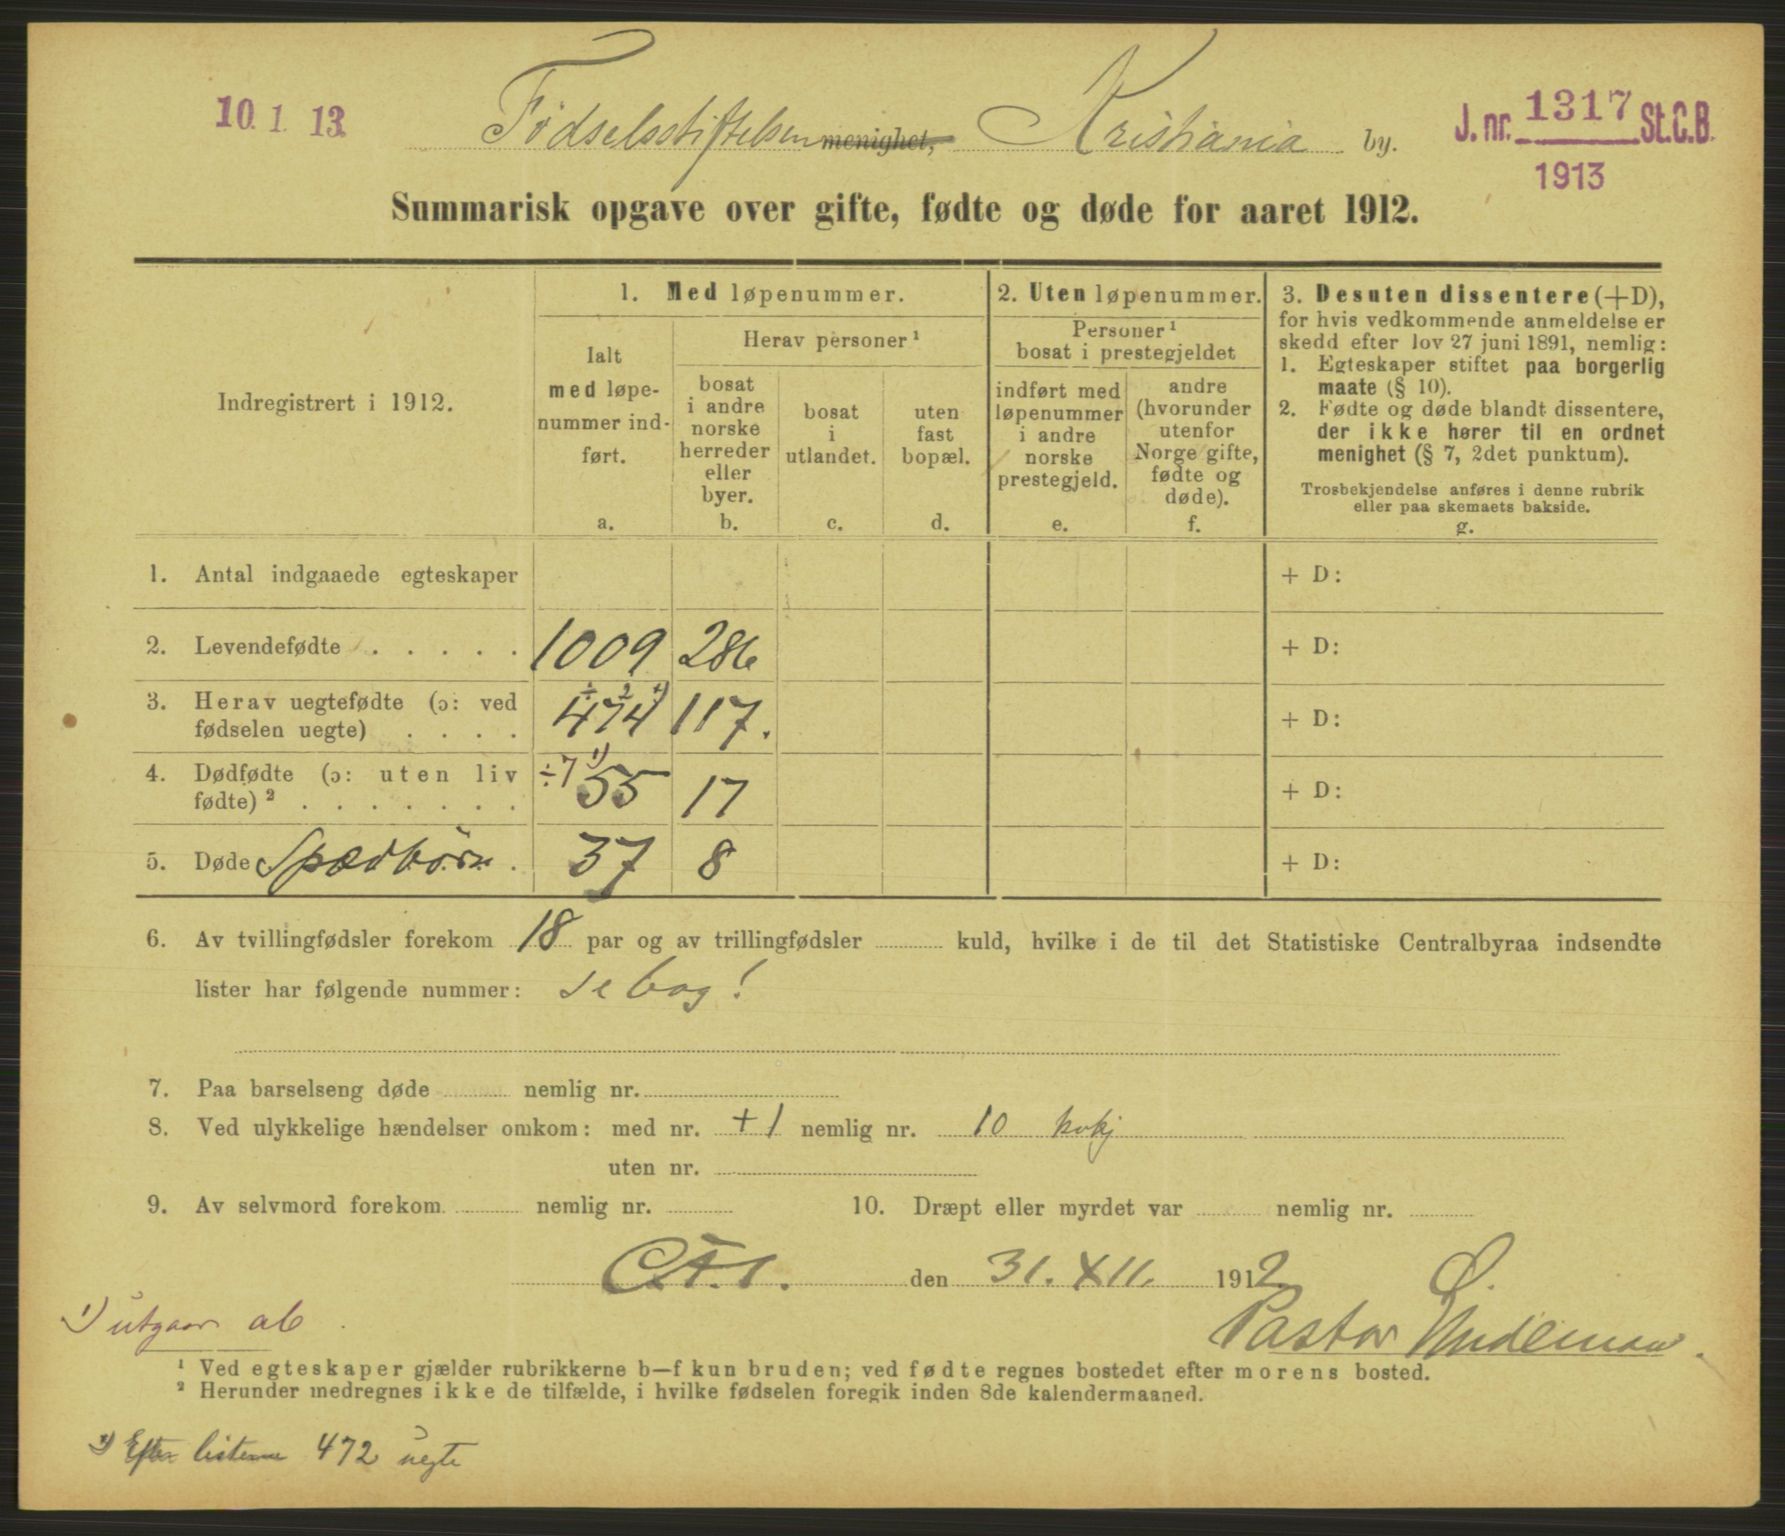 10. 1. 13.
Fødselsstiftelsen menighet, Kristiania by.
J. nr. 1317 St.C.B.
1913
Summarisk opgave over gifte, fødte og døde for aaret 1912.
Indregistrert i 1912.
1. Med løpenummer.
Ialt
med løpe-
nummer ind-
ført.
a.
Herav personer ¹
bosat
i andre
norske
herreder
eller
byer.
b.
bosat
i
utlandet.
c.
uten
fast
bopæl.
d.
2. Uten løpenummer.
Personer ¹
bosat i prestegjeldet
indført med
løpenummer
i andre
norske
prestegjeld.
e.
andre
(hvorunder
utenfor
Norge gifte,
fødte og
døde).
f.
3. Desuten dissentere (+D),
for hvis vedkommende anmeldelse er
skedd efter lov 27 juni 1891, nemlig:
1. Egteskaper stiftet paa borgerlig
maate (§ 10).
2. Fødte og døde blandt dissentere,
der ikke hører til en ordnet
menighet (§ 7, 2det punktum).
Trosbekjendelse anføres i denne rubrik
eller paa skemaets bakside.
g.
1. Antal indgaaede egteskaper + D:
2. Levendefødte . . . . . 1009 286 + D:
3. Herav uegtefødte (ɔ: ved
fødselen uegte) . . . . ÷ 2 474 117. + D:
4. Dødfødte (ɔ: uten liv
fødte) ² . . . . . . . ÷7 ¹) 55 17 + D:
5. Døde Spædbørn . 37 8 + D:
6. Av tvillingfødsler forekom 18 par og av trillingfødsler kuld, hvilke i de til det Statistiske Centralbyraa indsendte
lister har følgende nummer: se bag!
7. Paa barselseng døde nemlig nr.
8. Ved ulykkelige hændelser omkom: med nr. +1 nemlig nr. 10
uten nr.
9. Av selvmord forekom nemlig nr. 10. Dræpt eller myrdet var nemlig nr.
den 31. XII. 1912 Ø.
Pastor
¹) utgaar ab
¹ Ved egteskaper gjælder rubrikkerne b—f kun bruden; ved fødte regnes bostedet efter morens bosted.
² Herunder medregnes ikke de tilfælde, i hvilke fødselen foregik inden 8de kalendermaaned.
Efter listerne 472 uegte